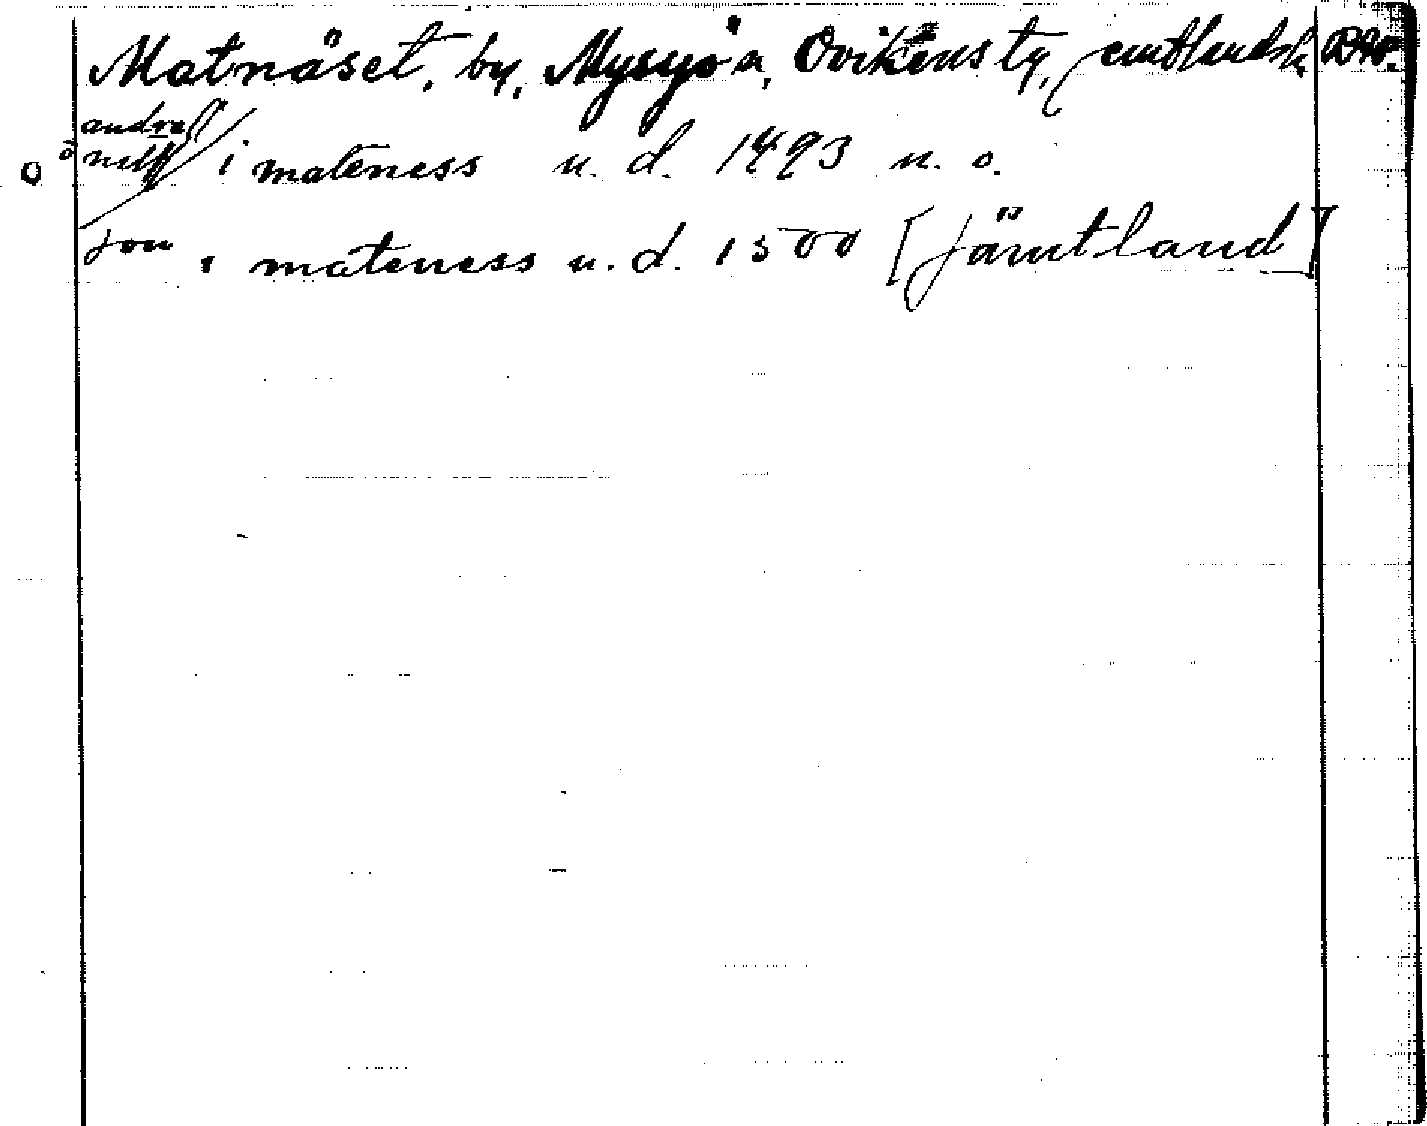 Matnäset, by, Myssjö s, Ovikens tg, Jämtlands l.
andress
i mateness u. d. 1493 n. o.
jon i mateness u. d. 1500 [Jämtland]